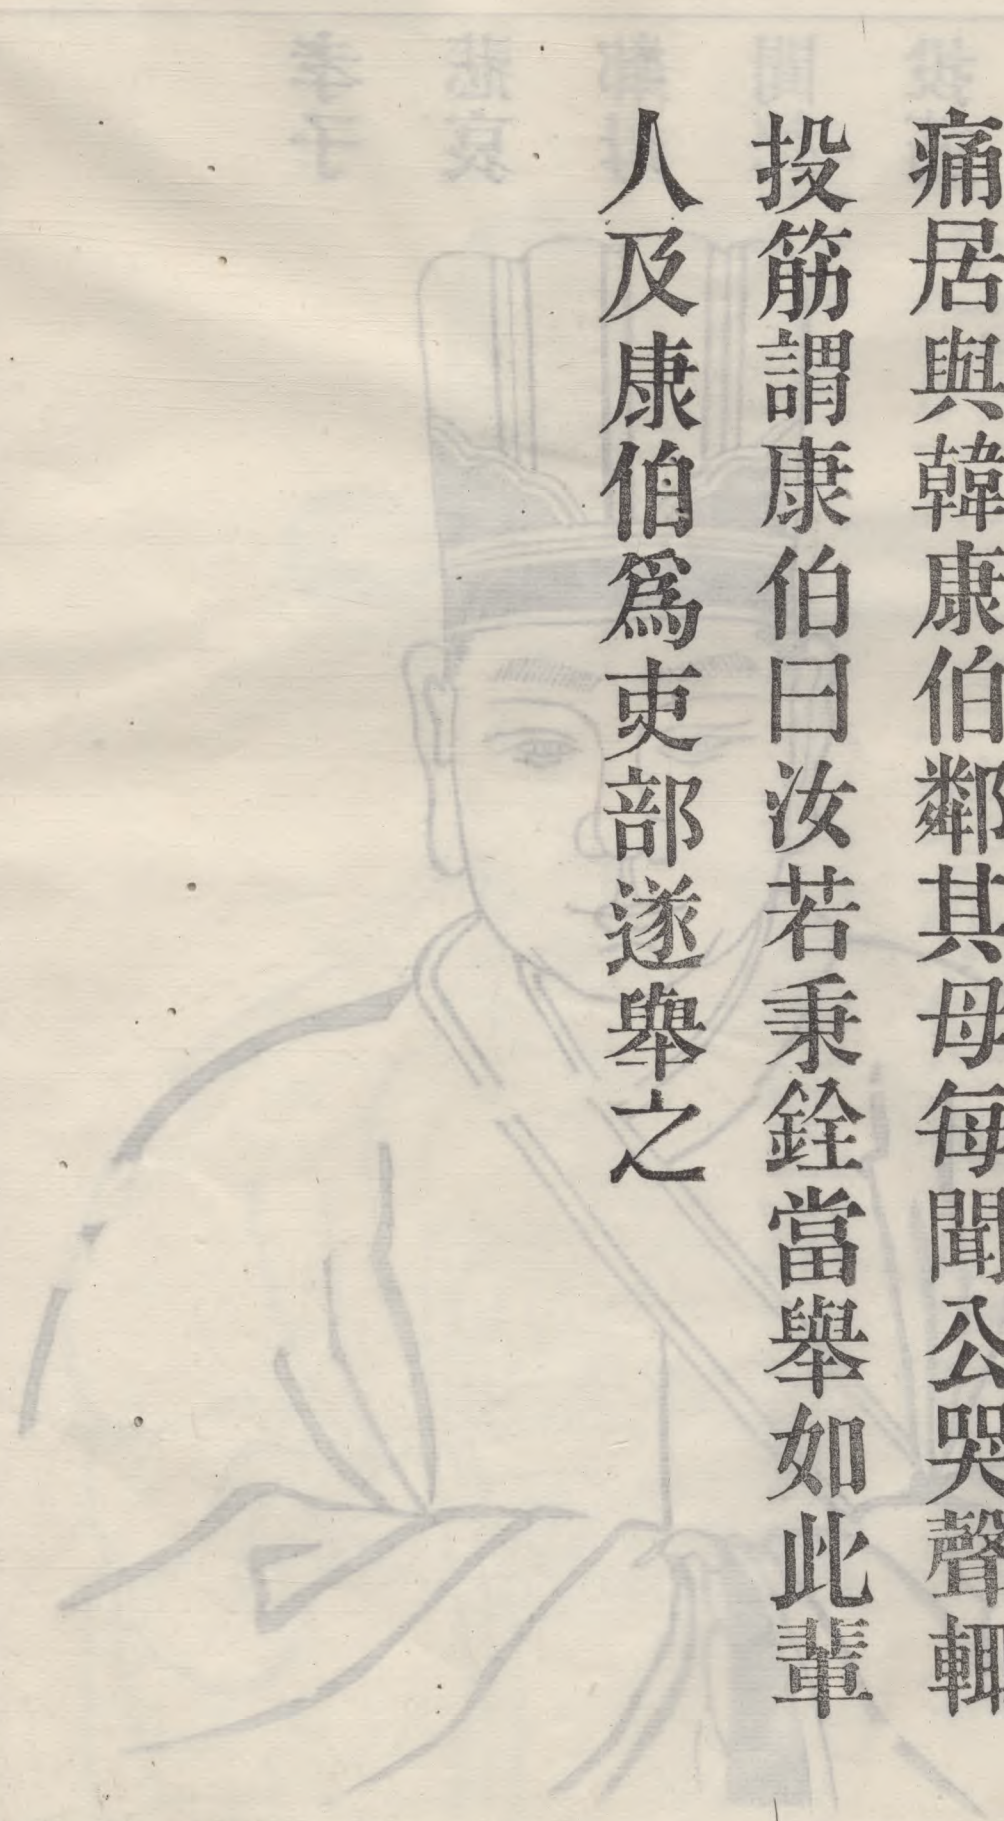 痛居與韓康伯鄰其母每聞公哭聲輒
投筋謂康伯曰汝若秉銓當舉如此輩
人及康伯爲吏部遂舉之